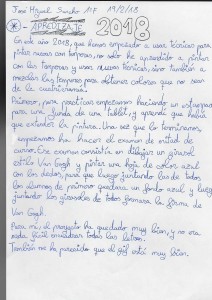 José Miguel Sancho 1ºF 19/2/18
APRENDIZAJE 2018
En este año 2018, que hemos empezado a usar técnicas para
pintar nuevas con temperas, no solo he aprendido a pintar
con las temperas y usar nuevas técnicas, sino también a
mezclar las temperas para obtener colores que no sean
de la cuatricromía.
Primero, para practicar empezamos haciendo un estampado
para una funda de una tablet, y aprendí que había
que extender la pintura. Una vez que lo terminamos,
empezamos ha hacer el examen de mitad de
curso. Ese examen consistía en dibujar un girasol
estilo Van Gogh y pintar una hoja de color azul
con los dedos, para que luego juntando las de todos
los alumnos de primero quedara un fondo azul y luego
juntando los girasoles de todos formara la forma de
Van Gogh.
Para mí, el proyecto ha quedado muy bien, y no era
nada fácil encuadrar todas las letras.
También me ha parecido que el gif está muy bien.